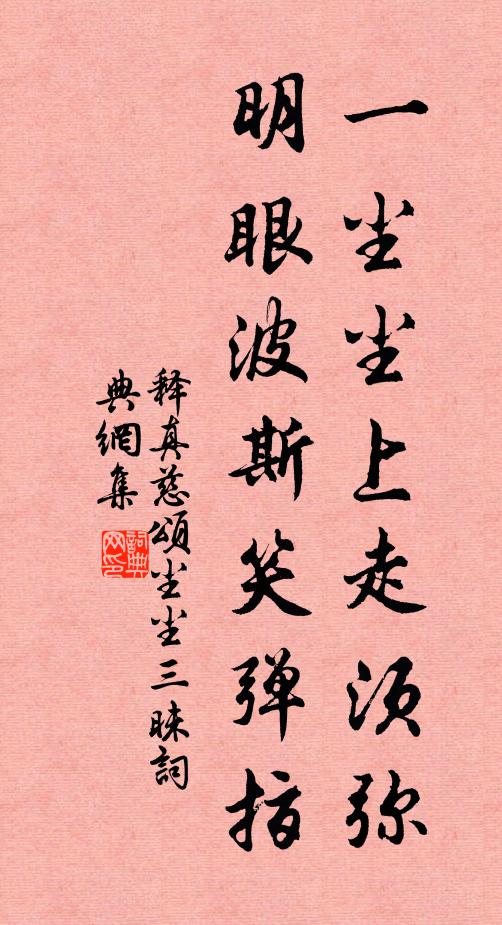 一尘尘上走须弥
明眼波斯笑弹指
释真慈颂尘尘三昧词
典網集
詞典网印